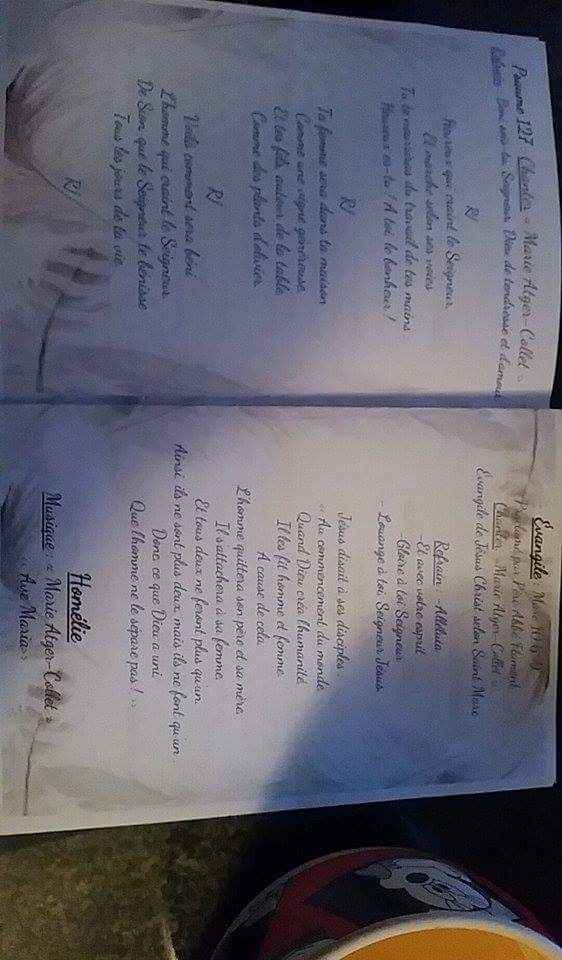 Psaume 127 Chanter « Marie Alger-Collet »
Refrain : Béni sois-tu Seigneur, Dieu de tendresse et d'amour
R/
Heureux qui craint le Seigneur,
Et marche selon ses voies
Tu te nourriras du travail de tes mains
Heureux es-tu ! A toi le bonheur !
R/
Ta femme sera dans ta maison
Comme une vigne généreuse,
Et tes fils autour de la table
Comme des plants d'olivier
R/
Voilà comment sera béni
L'homme qui craint le Seigneur
De Sion, que le Seigneur te bénisse
Tous les jours de ta vie.
R/
Évangile Marc
par Père Abbé Flament
Chanter « Marie Alger-Collet »
Évangile de Jésus Christ selon Saint Marc
Refrain : Alléluia
-Et avec votre esprit
-Gloire à toi Seigneur
- Louange à toi Seigneur Jésus
Jésus disait à ses disciples :
« Au commencement du monde
Quand Dieu créa l'humanité
Il les fit homme et femme
A cause de cela
L'homme quittera son père et sa mère,
Il s'attachera à sa femme,
Et tous deux ne feront plus qu'un
Ainsi ils ne sont plus deux mais ils ne font qu'un
Donc ce que Dieu a uni,
Que l'homme ne le sépare pas ! »
Homélie
Musique : « Marie Alger-Collet »
« Ave Maria »